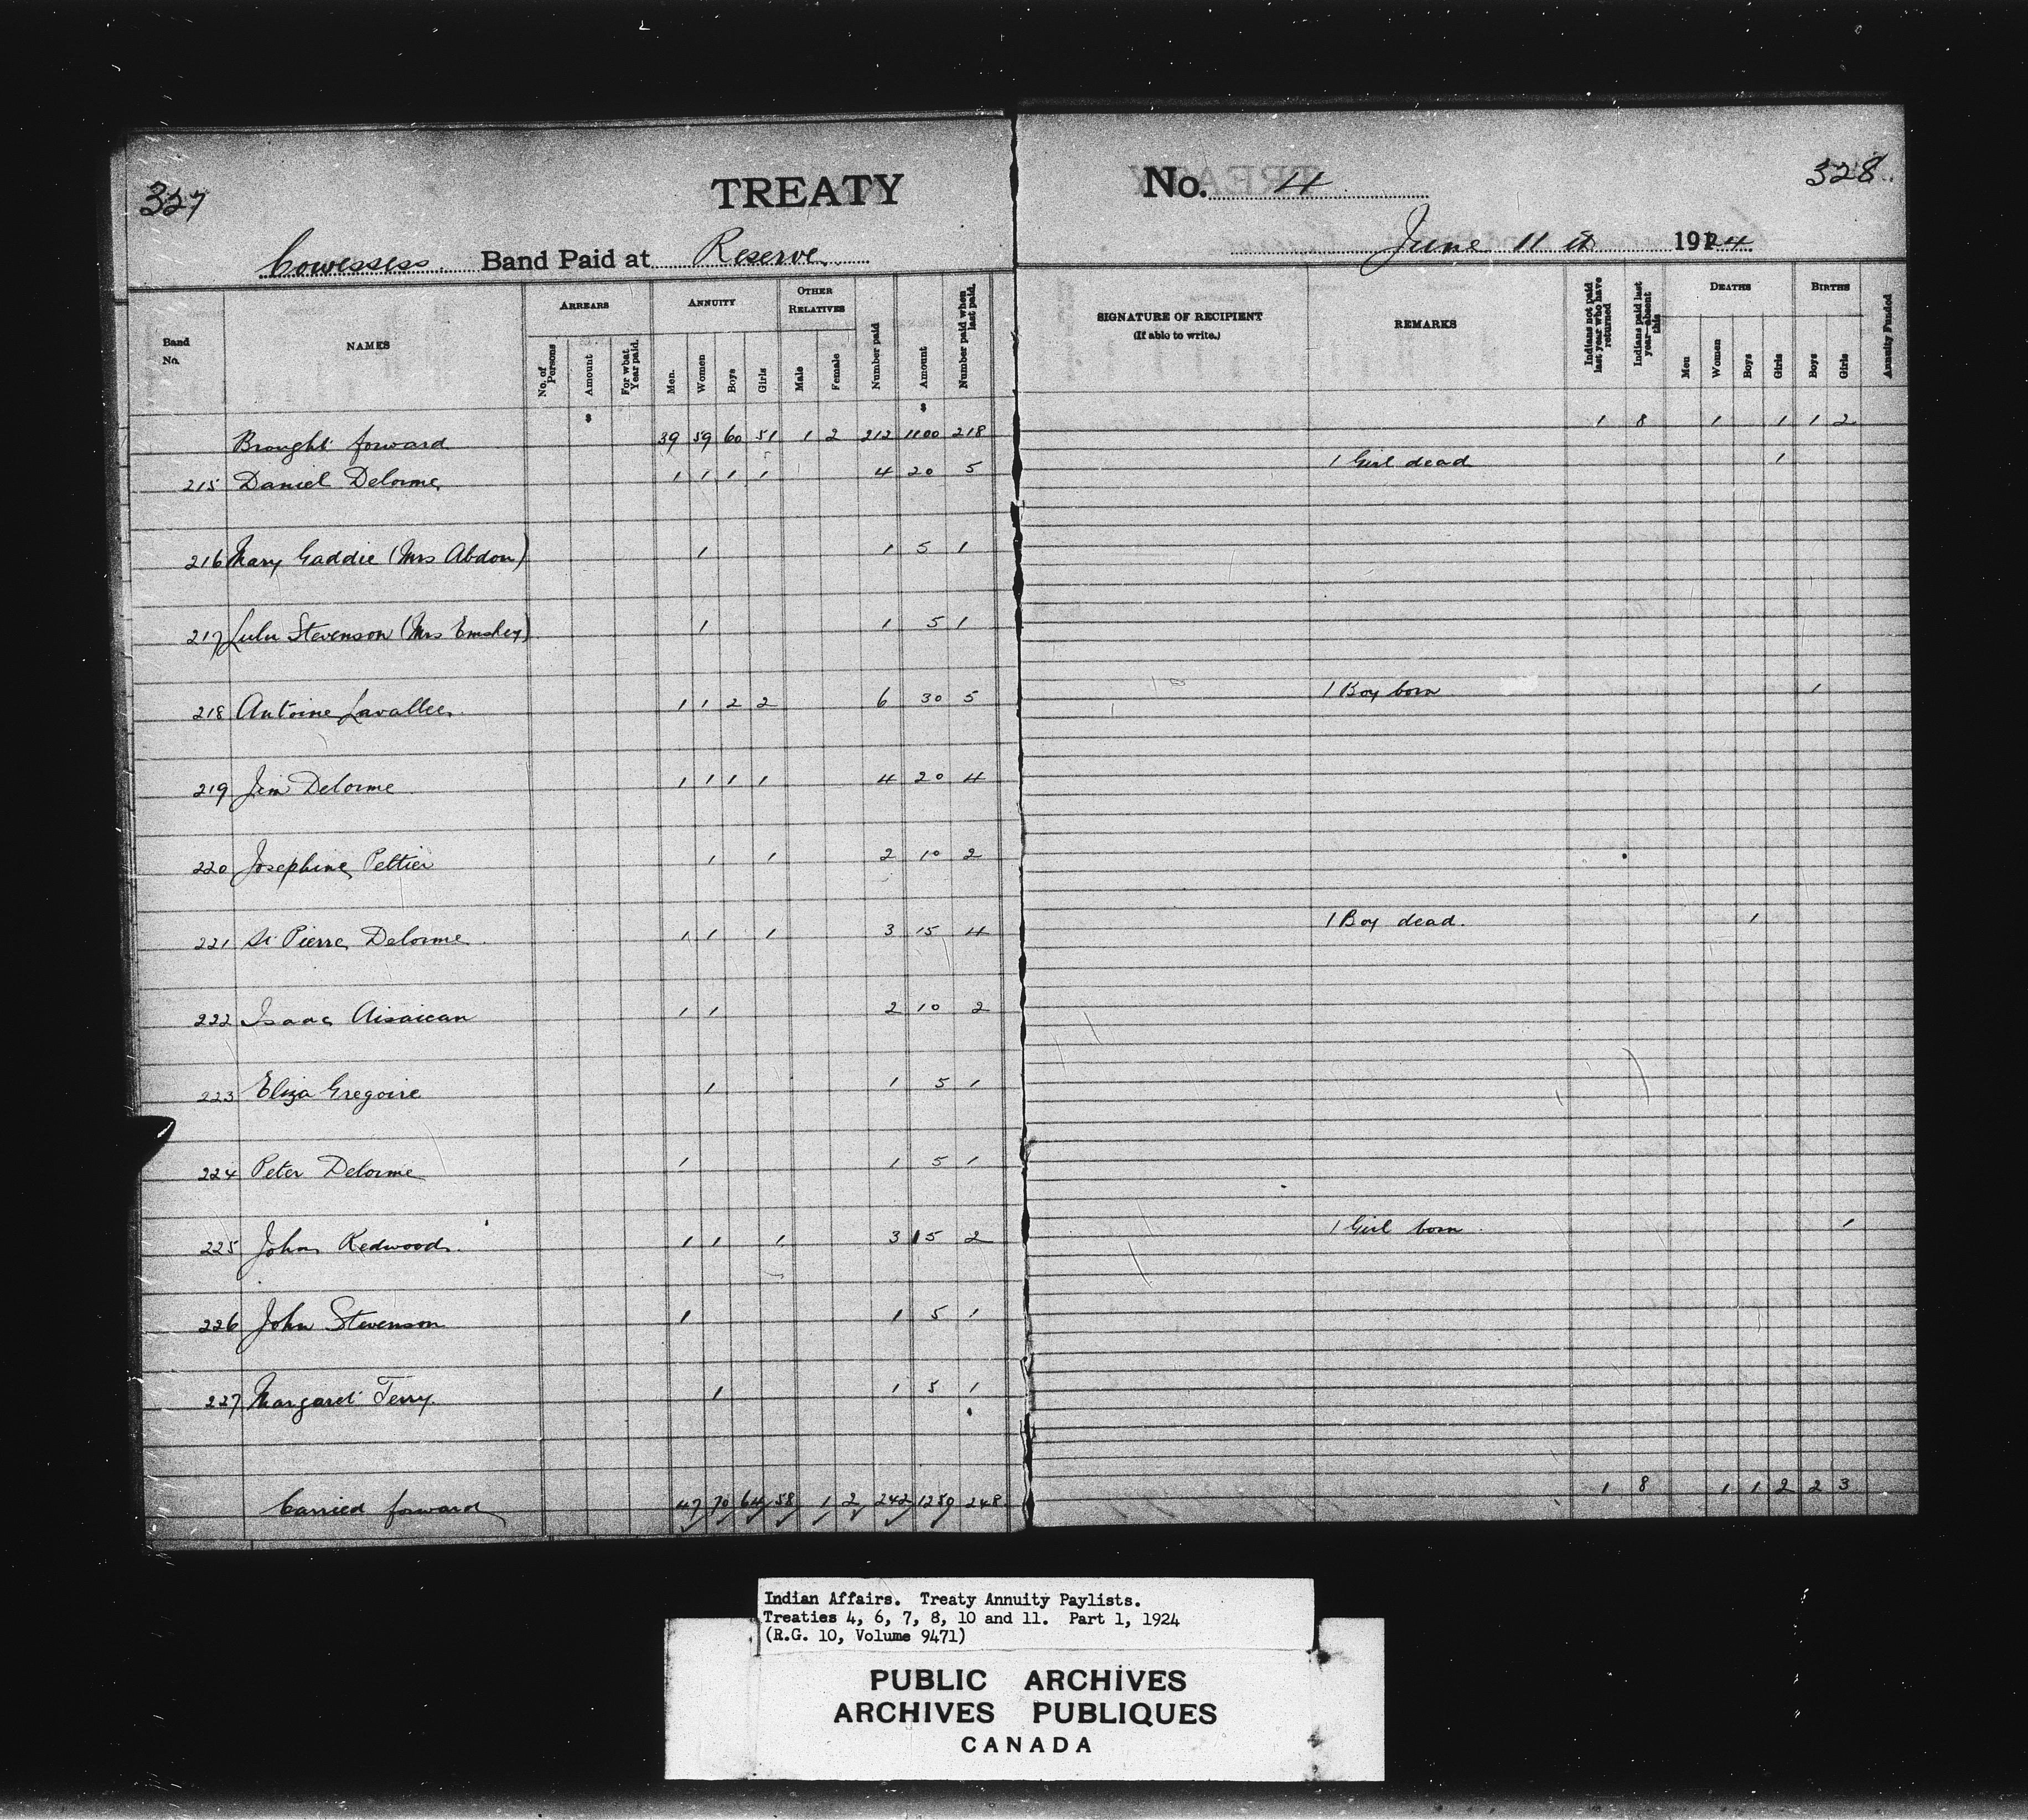 327
TREATY
No. 4
328
Cowessess Band Paid at Reserve
June 11th 1924
Band No.
NAMES
ARREARS
No. of Persons
Amount
For what Year paid.
ANNUITY
Men.
Women
Boys
Girls
OTHER RELATIVES
Male
Female
Number paid
Amount
Number paid when last paid.
SIGNATURE OF RECIPIENT
(If able to write.)
REMARKS
Indians not paid last year who have returned
Indians paid last year—absent this
DEATHS
Men
Women
Boys
Girls
BIRTHS
Boys
Girls
Annuity Funded
$ $
Brought forward 39 59 60 51 1 2 212 1100 218 1 8 1 1 1 2
215 Daniel Delorme 1 1 1 1 4 20 5 1 Girl dead 1
216 Mary Gaddie (Mrs Abdon) 1 1 5 1
217 Lulu Stevenson (Mrs Emshey) 1 1 5 1
218 Antoine Lavallee 1 1 2 2 6 30 5 1 Boy born 1
219 Jim Delorme 1 1 1 1 4 20 4
220 Josephine Peltier 1 1 2 10 2
221 St Pierre Delorme 1 1 1 3 15 4 1 Boy dead. 1
222 Isaac Aisaican 1 1 2 10 2
223 Eliza Gregoire 1 1 5 1
224 Peter Delorme 1 1 5 1
225 John Redwood. 1 1 1 3 15 2 1 Girl born 1
226 John Stevenson 1 1 5 1
227 Margaret Terry. 1 1 5 1
Carried forward 47 70 64 58 1 2 242 1250 248 1 8 1 1 2 2 3
Indian Affairs. Treaty Annuity Paylists.
Treaties 4, 6, 7, 8, 10 and 11. Part 1, 1924
(R.G. 10, Volume 9471)
PUBLIC ARCHIVES
ARCHIVES PUBLIQUES
CANADA